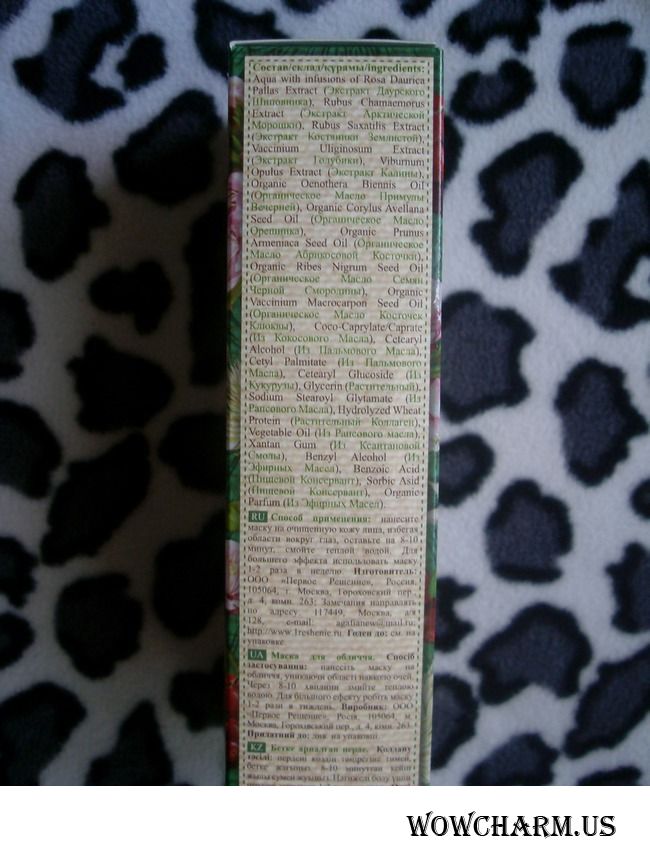 Состав/склад/құрамы/ingredients:
Aqua with infusions of Rosa Daurica
Pallas Extract (Экстракт Даурского
Шиповника), Rubus Chamaemorus
Extract (Экстракт Арктической
Морошки), Rubus Saxatilis Extract
(Экстракт Костяники Землистой),
Vaccinium Uliginosum Extract
(Экстракт Голубики), Viburnum
Opulus Extract (Экстракт Калины),
Organic Oenothera Biennis Oil
(Органическое Масло Примулы
Вечерней), Organic Corylus Avellana
Seed Oil (Органическое Масло
Орешника), Organic Prunus
Armeniaca Seed Oil (Органическое
Масло Абрикосовой Косточки),
Organic Ribes Nigrum Seed Oil
(Органическое Масло Семян
Черной Смородины), Organic
Vaccinium Macrocarpon Seed Oil
(Органическое Масло Косточек
Клюквы), Coco-Caprylate/Caprate
(Из Кокосового Масла), Cetearyl
Alcohol (Из Пальмового Масла),
Cetyl Palmitate (Из Пальмового
Масла), Cetearyl Glucoside (Из
Кукурузы), Glycerin (Растительный),
Sodium Stearoyl Glutamate (Из
Рапсового Масла), Hydrolyzed Wheat
Protein (Растительный Коллаген),
Vegetable Oil (Из Рапсового масла),
Xantan Gum (Из Ксантановой
Смолы), Benzyl Alcohol (Из
Эфирных Масел), Benzoic Acid
(Пищевой Консервант), Sorbic Asid
(Пищевой Консервант), Organic
Parfum (Из Эфирных Масел).
RU Способ применения: нанесите
маску на очищенную кожу лица, избегая
области вокруг глаз, оставьте на 8-10
минут, смойте теплой водой. Для
большего эффекта использовать маску
1-2 раза в неделю. Изготовитель:
ООО «Первое Решение», Россия,
105064, г. Москва, Гороховский пер.,
д. 4, комн. 263; Замечания направлять
по адресу: 117449, Москва, а/я
128, e-mail: agafianew@mail.ru;
http://www.1reshenie.ru. Годен до: см. на
упаковке.
UA Маска для обличчя. Спосіб
застосування: нанесіть маску на
обличчя, уникаючи області навколо очей.
Через 8-10 хвилин змийте теплою
водою. Для більшого ефекту робіть маску
1-2 рази в тиждень. Виробник: ООО
«Первое Решение», Росія, 105064, м.
Москва, Гороховський пер., д. 4, комн. 263.
Придатний до: див. на упаковці.
KZ Бетке арналған перде. Қолдану
тәсілі:
WOWCHARM.US